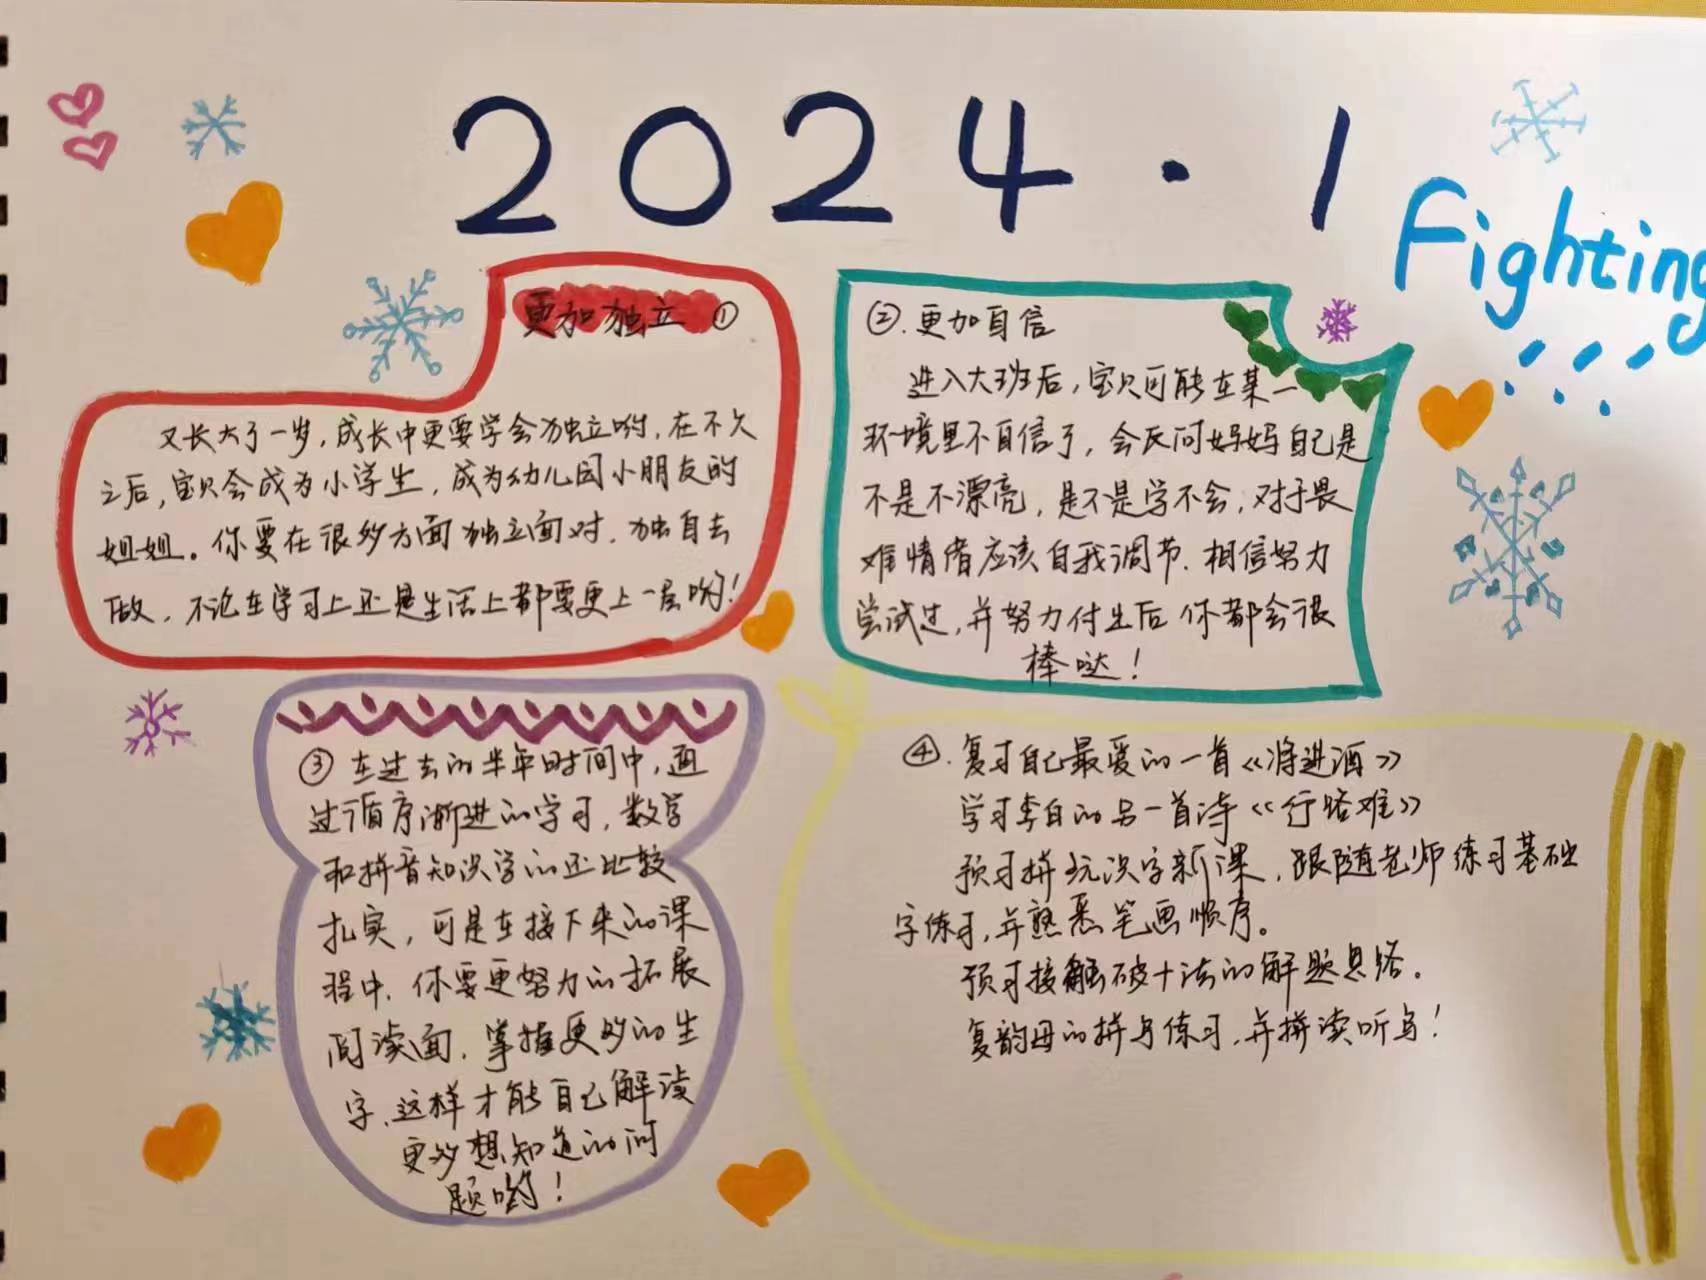 2024.1
Fighting
更加独立 ①
又长大了一岁,成长中更要学会独立哟,在不久
之后,宝贝会成为小学生,成为幼儿园小朋友的
姐姐。你要在很多方面独立面对,独自去
做,不论在学习上还是生活上都要更上一层哟!
②.更加自信
进入大班后,宝贝可能在某一
环境里不自信了,会反问妈妈自己是
不是不漂亮,是不是学不会,对于畏
难情绪应该自我调节.相信努力
尝试过,并努力付出后 你都会很
棒哒!
③ 在过去的半年时间中,通
过循序渐进的学习,数学
和拼音知识学的还比较
扎实,可是在接下来的课
程中.你要更努力的拓展
阅读面,掌握更多的生
字,这样才能自己解读
更多想知道的问
题哟!
④.复习自己最爱的一首《将进酒》
学习李白的另一首诗《行路难》
预习拼玩识字新课,跟随老师练习基础
字练习,并熟悉笔画顺序。
预习接触破十法的解题思路.
复韵母的拼写练习,并拼读听写!